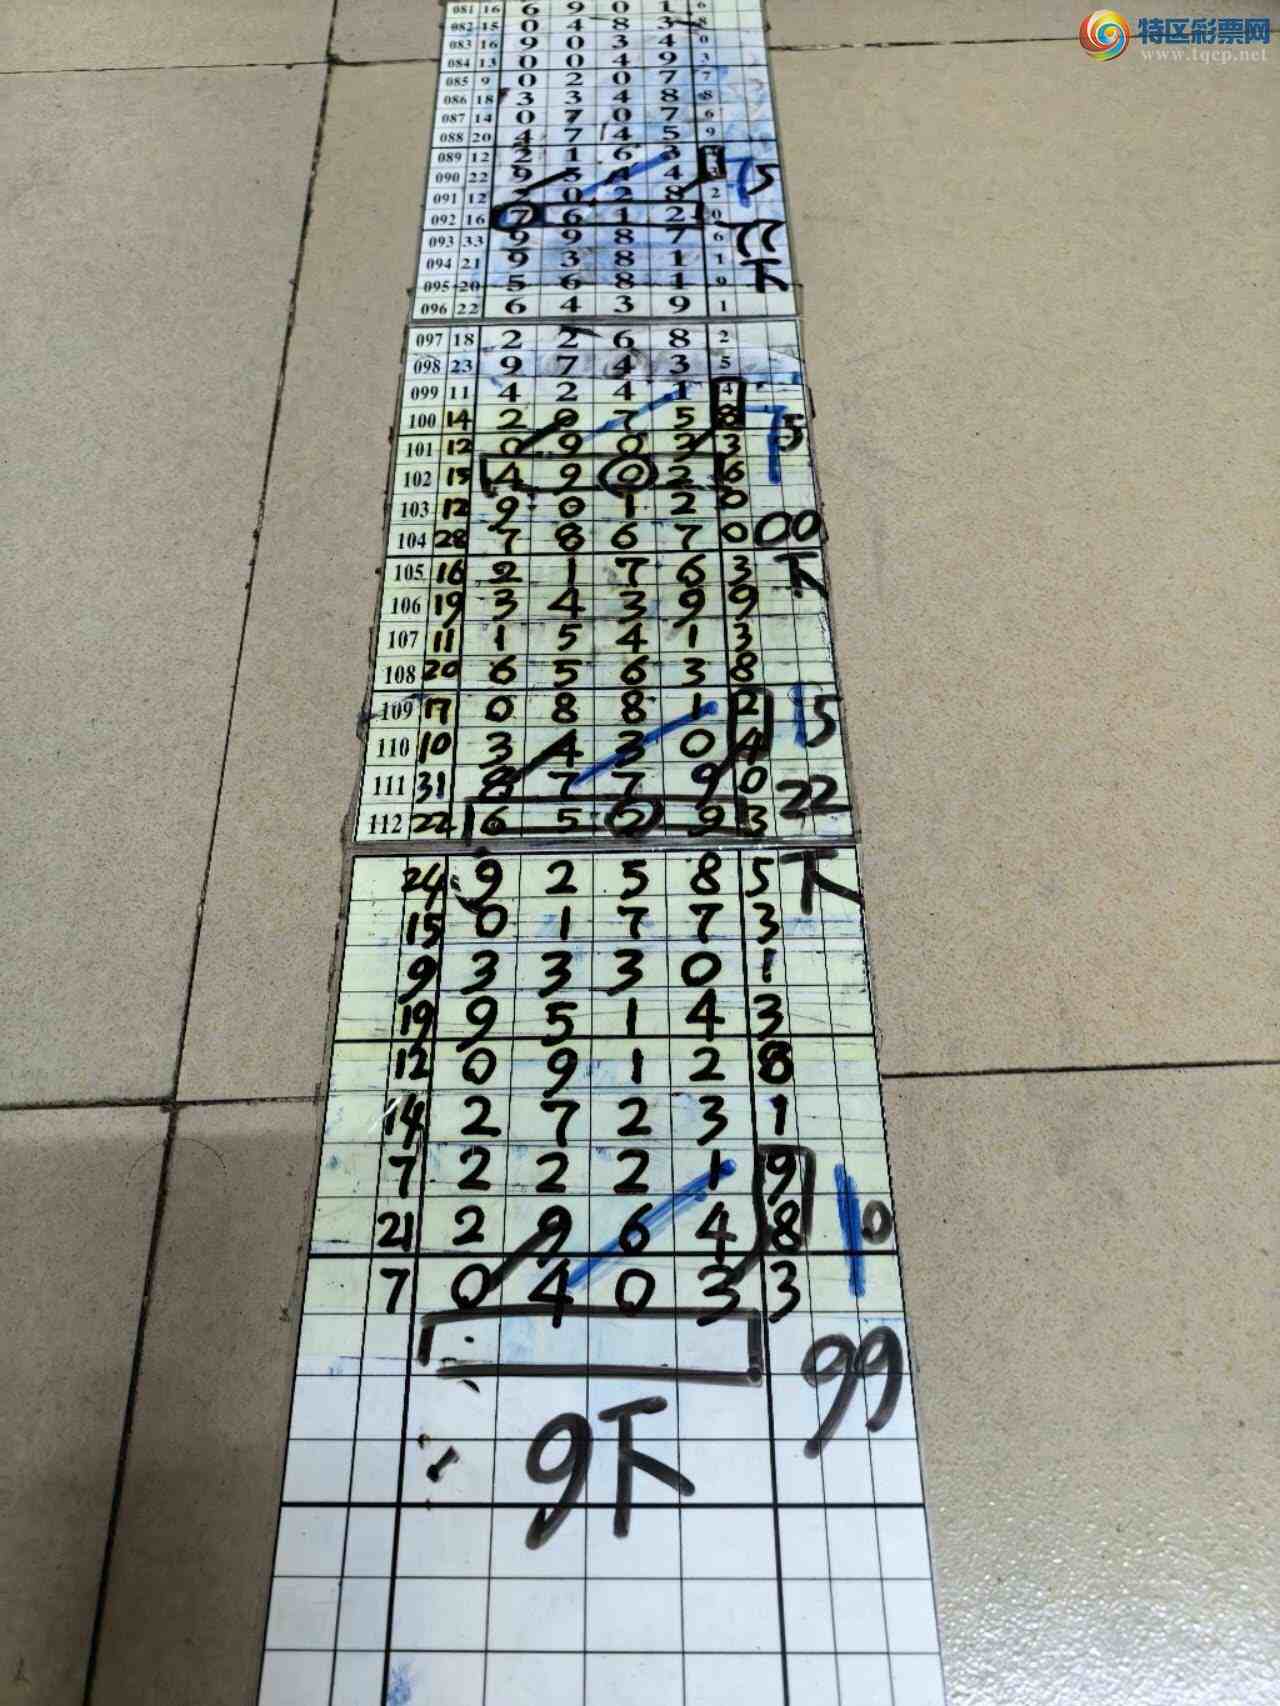 特区彩票网
www.tqcp.net
081 16 6 9 0 1 6
082 15 0 4 8 3 8
083 16 9 0 3 4 0
084 13 0 0 4 9 3
085 9 0 2 0 7 7
086 18 3 3 4 8 8
087 14 0 7 0 7 6
088 20 4 7 4 5 9
089 12 2 1 6 3
090 22 9 5 4 4 75
091 12 2 0 2 8 2
092 16 7 6 1 2 0
093 33 9 9 8 7 6 77
094 21 9 3 8 1 1 下
095 20 5 6 8 1 9
096 22 6 4 3 9 1
097 18 2 2 6 8 2
098 23 9 7 4 3 5
099 11 4 2 4 1 4
100 14 2 0 7 5 8 75
101 12 0 9 0 3 3
102 15 4 9 0 2 6
103 12 9 0 1 2 0
104 28 7 8 6 7 0 00
105 16 2 1 7 6 3 下
106 19 3 4 3 9 9
107 11 1 5 4 1 3
108 20 6 5 6 3 8
109 17 0 8 8 1 2 15
110 10 3 4 3 0 4
111 31 8 7 7 9 0 22
112 22 6 5 2 9 3
24 9 2 5 8 5 下
15 0 1 7 7 3
9 3 3 3 0 1
19 9 5 1 4 3
12 0 9 1 2 8
14 2 7 2 3 1
7 2 2 2 1 9
21 2 9 6 4 8 10
7 0 4 0 3 3
99
9下